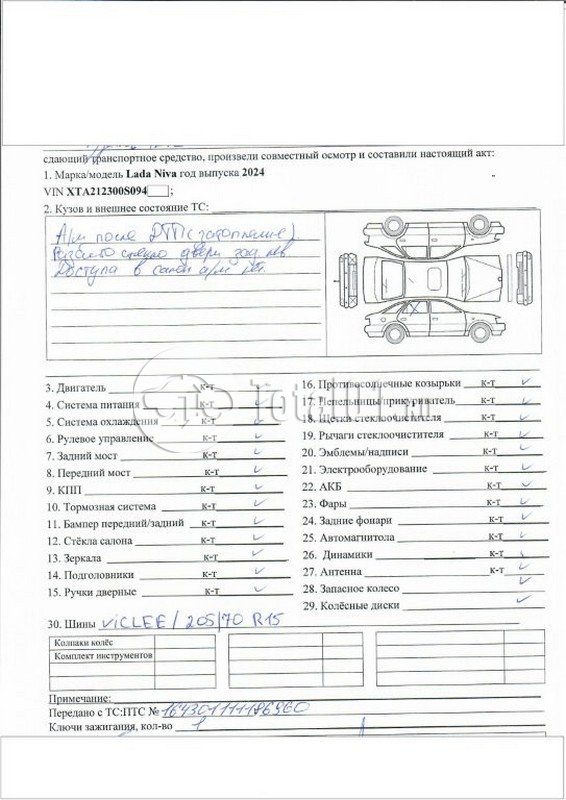 сдающий транспортное средство, произвели совместный осмотр и составили настоящий акт:
1. Марка/модель Lada Niva год выпуска 2024
VIN XTA212300S094 ;
2. Кузов и внешнее состояние ТС:
А/м после ДТП (затопление)
Разбито стекло двери зад. лев
Доступа в салон а/м нет.
3. Двигатель к-т
4. Система питания к-т
5. Система охлаждения к-т
6. Рулевое управление к-т
7. Задний мост к-т
8. Передний мост к-т
9. КПП к-т
10. Тормозная система к-т
11. Бампер передний/задний к-т
12. Стёкла салона к-т
13. Зеркала к-т
14. Подголовники к-т
15. Ручки дверные к-т
16. Противосолнечные козырьки к-т
17. Пепельницы/прикуриватель к-т
18. Щетки стеклоочистителя к-т
19. Рычаги стеклоочистителя к-т
20. Эмблемы/надписи к-т
21. Электрооборудование к-т
22. АКБ к-т
23. Фары к-т
24. Задние фонари к-т
25. Автомагнитола к-т
26. Динамики к-т
27. Антенна к-т
28. Запасное колесо
29. Колёсные диски
30. Шины VICLEE / 205/70 R15
Колпаки колёс
Комплект инструментов
Примечание:
Передано с ТС:ПТС № 164301111186960
Ключи зажигания, кол-во 1